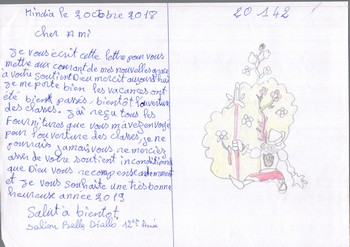 Mindia le 2 octobre 2018
cher Ami
Je vous ecrit cette lettre pour vous
mettre aux courant de mes nouvelles grace
a votre soutient Dieu merci aujourd'hui
je me porte bien les vacances ont
été bient passés. bientôt l'ouverture
des classes. J'ai reçu tous les
Fournitures que vous m'avez envoyé
pour l'ouverture des classes. je ne
pourrais jamais vous remercies
assez de votre soutient inconditions
que Dieu vous recompense
et je vous souhaite une très bonne
heureuse année 2019
Salut à bientot
saliou Bella Diallo 12 ans
20 142